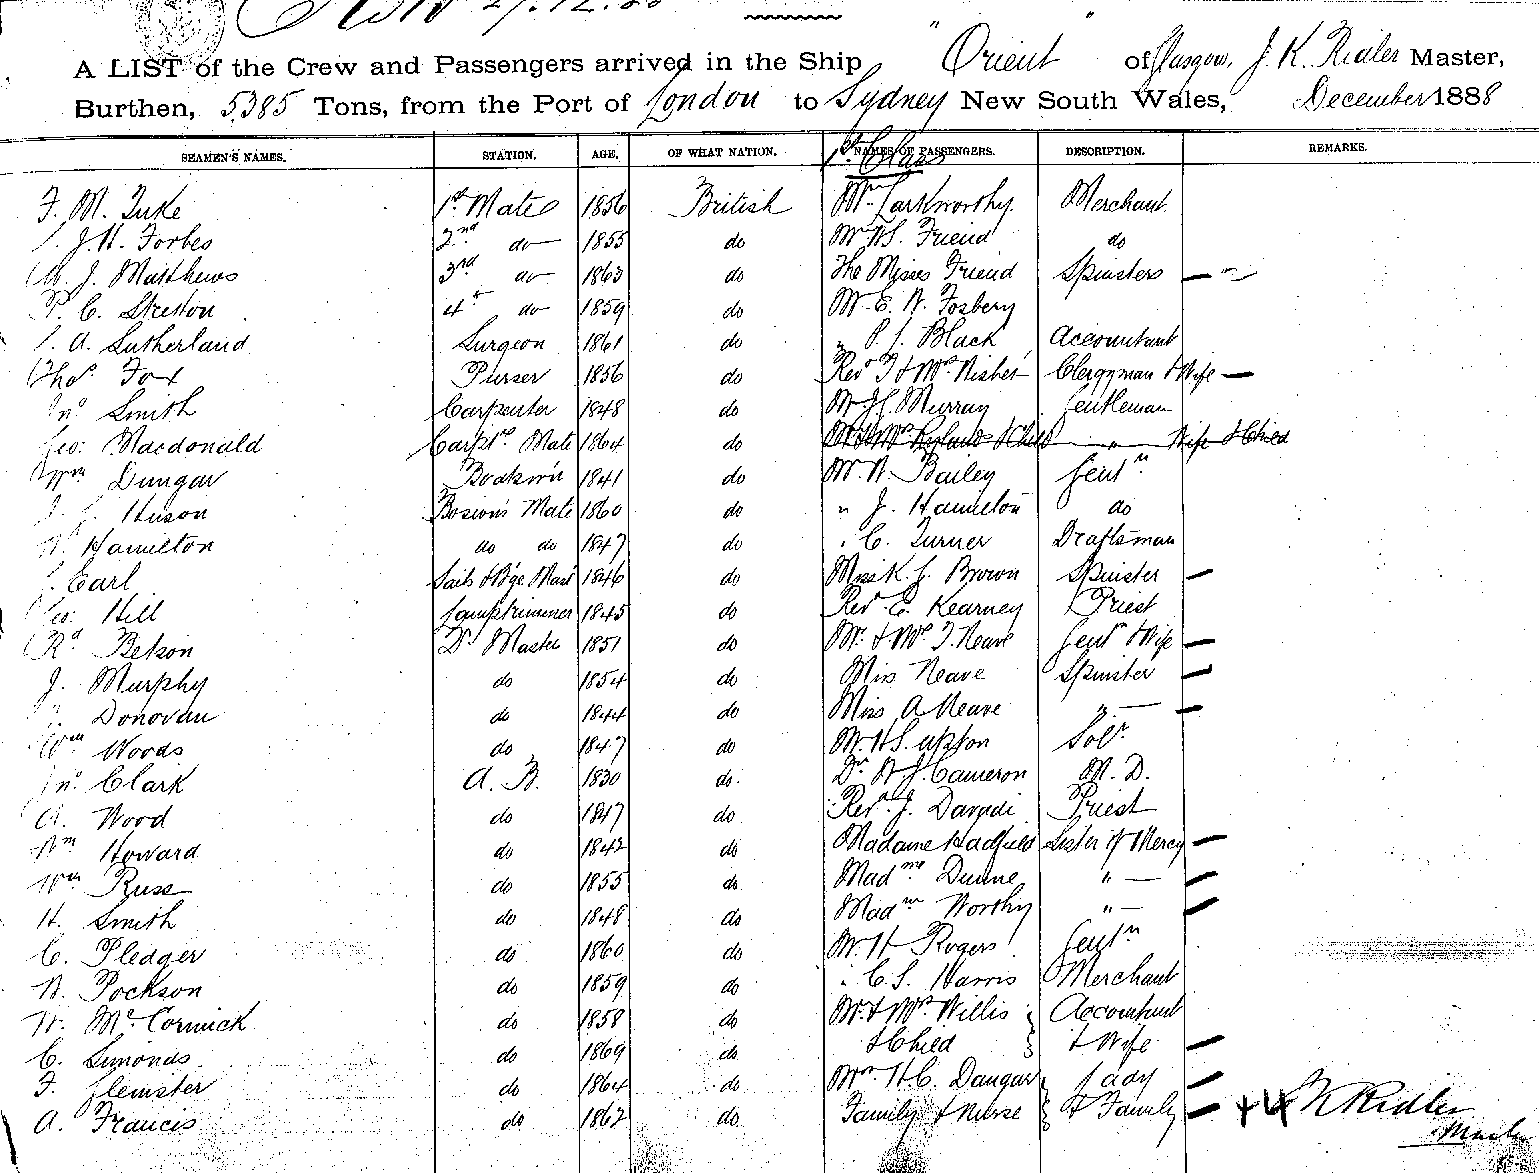 27.12.88
A LIST of the Crew and Passengers arrived in the Ship "Orient" of Glasgow, J. K. Ridler Master,
Burthen, 5385 Tons, from the Port of London to Sydney New South Wales, December 1888
SEAMEN'S NAMES. STATION. AGE. OF WHAT NATION. NAMES OF PASSENGERS. DESCRIPTION. REMARKS.
1st Class
F. M. Tuke 1st Mate 1856 British Mr Larkworthy Merchant
J. H. Forbes 2nd do 1855 do Mr W S. Friend do
J. Matthews 3rd do 1863 do The Misses Friend Spinsters — " —
P. C. Stretton 4th do 1859 do Mr E. W. Fosbery
A. Sutherland Surgeon 1861 do " P. J. Black Accountant
Thos Fox Purser 1856 do Revd T & Mrs Nisbet Clergyman & Wife —
Jno Smith Carpenter 1848 do Mr Murray Gentleman
Geo: Macdonald Carptrs Mate 1864 do Mr & Mrs Ryland & Child " Wife & Child
Wm Dungar Boatsw'n 1841 do Mr W. Bailey Gentn
Huson Bosun's Mate 1860 do " J. Hamilton do
W. Hamilton do do 1847 do " C. Turner Draftsman
J. Earl Sails & B'ge Mast 1846 do Miss K. J. Brown Spinster —
Geo: Hill Lamptrimmer 1845 do Revd C. Kearney Priest
Rd Betson Qr Master 1851 do Mr & Mrs T. Neave Gentn & Wife —
J. Murphy do 1854 do Miss Neave Spinster —
Donovan do 1844 do Miss A Neave " — —
Wm Woods do 1847 do Mr H S. Upton Solr
Jno Clark A. B. 1830 do Dr W J. Cameron M. D.
A. Wood do 1847 do Revd J. Davadi Priest
Wm Howard do 1842 do Madame Hadfield Sister of Mercy —
Wm Russ do 1855 do Madme Dunne " — —
H. Smith do 1848 do Madm Worthy " — —
C. Pledger do 1860 do Mr H Rogers Gentn
W. Pockson do 1859 do " C. S. Harris Merchant
W. McCormick do 1858 do Mr & Mrs Willis Accountant
C. Simonds do 1869 do & Child & Wife —
F. Flemster do 1864 do Mrs H C. Dangar Lady —
A. Francis do 1862 do Family & Nurse & Family — +4 J K Ridler
Master